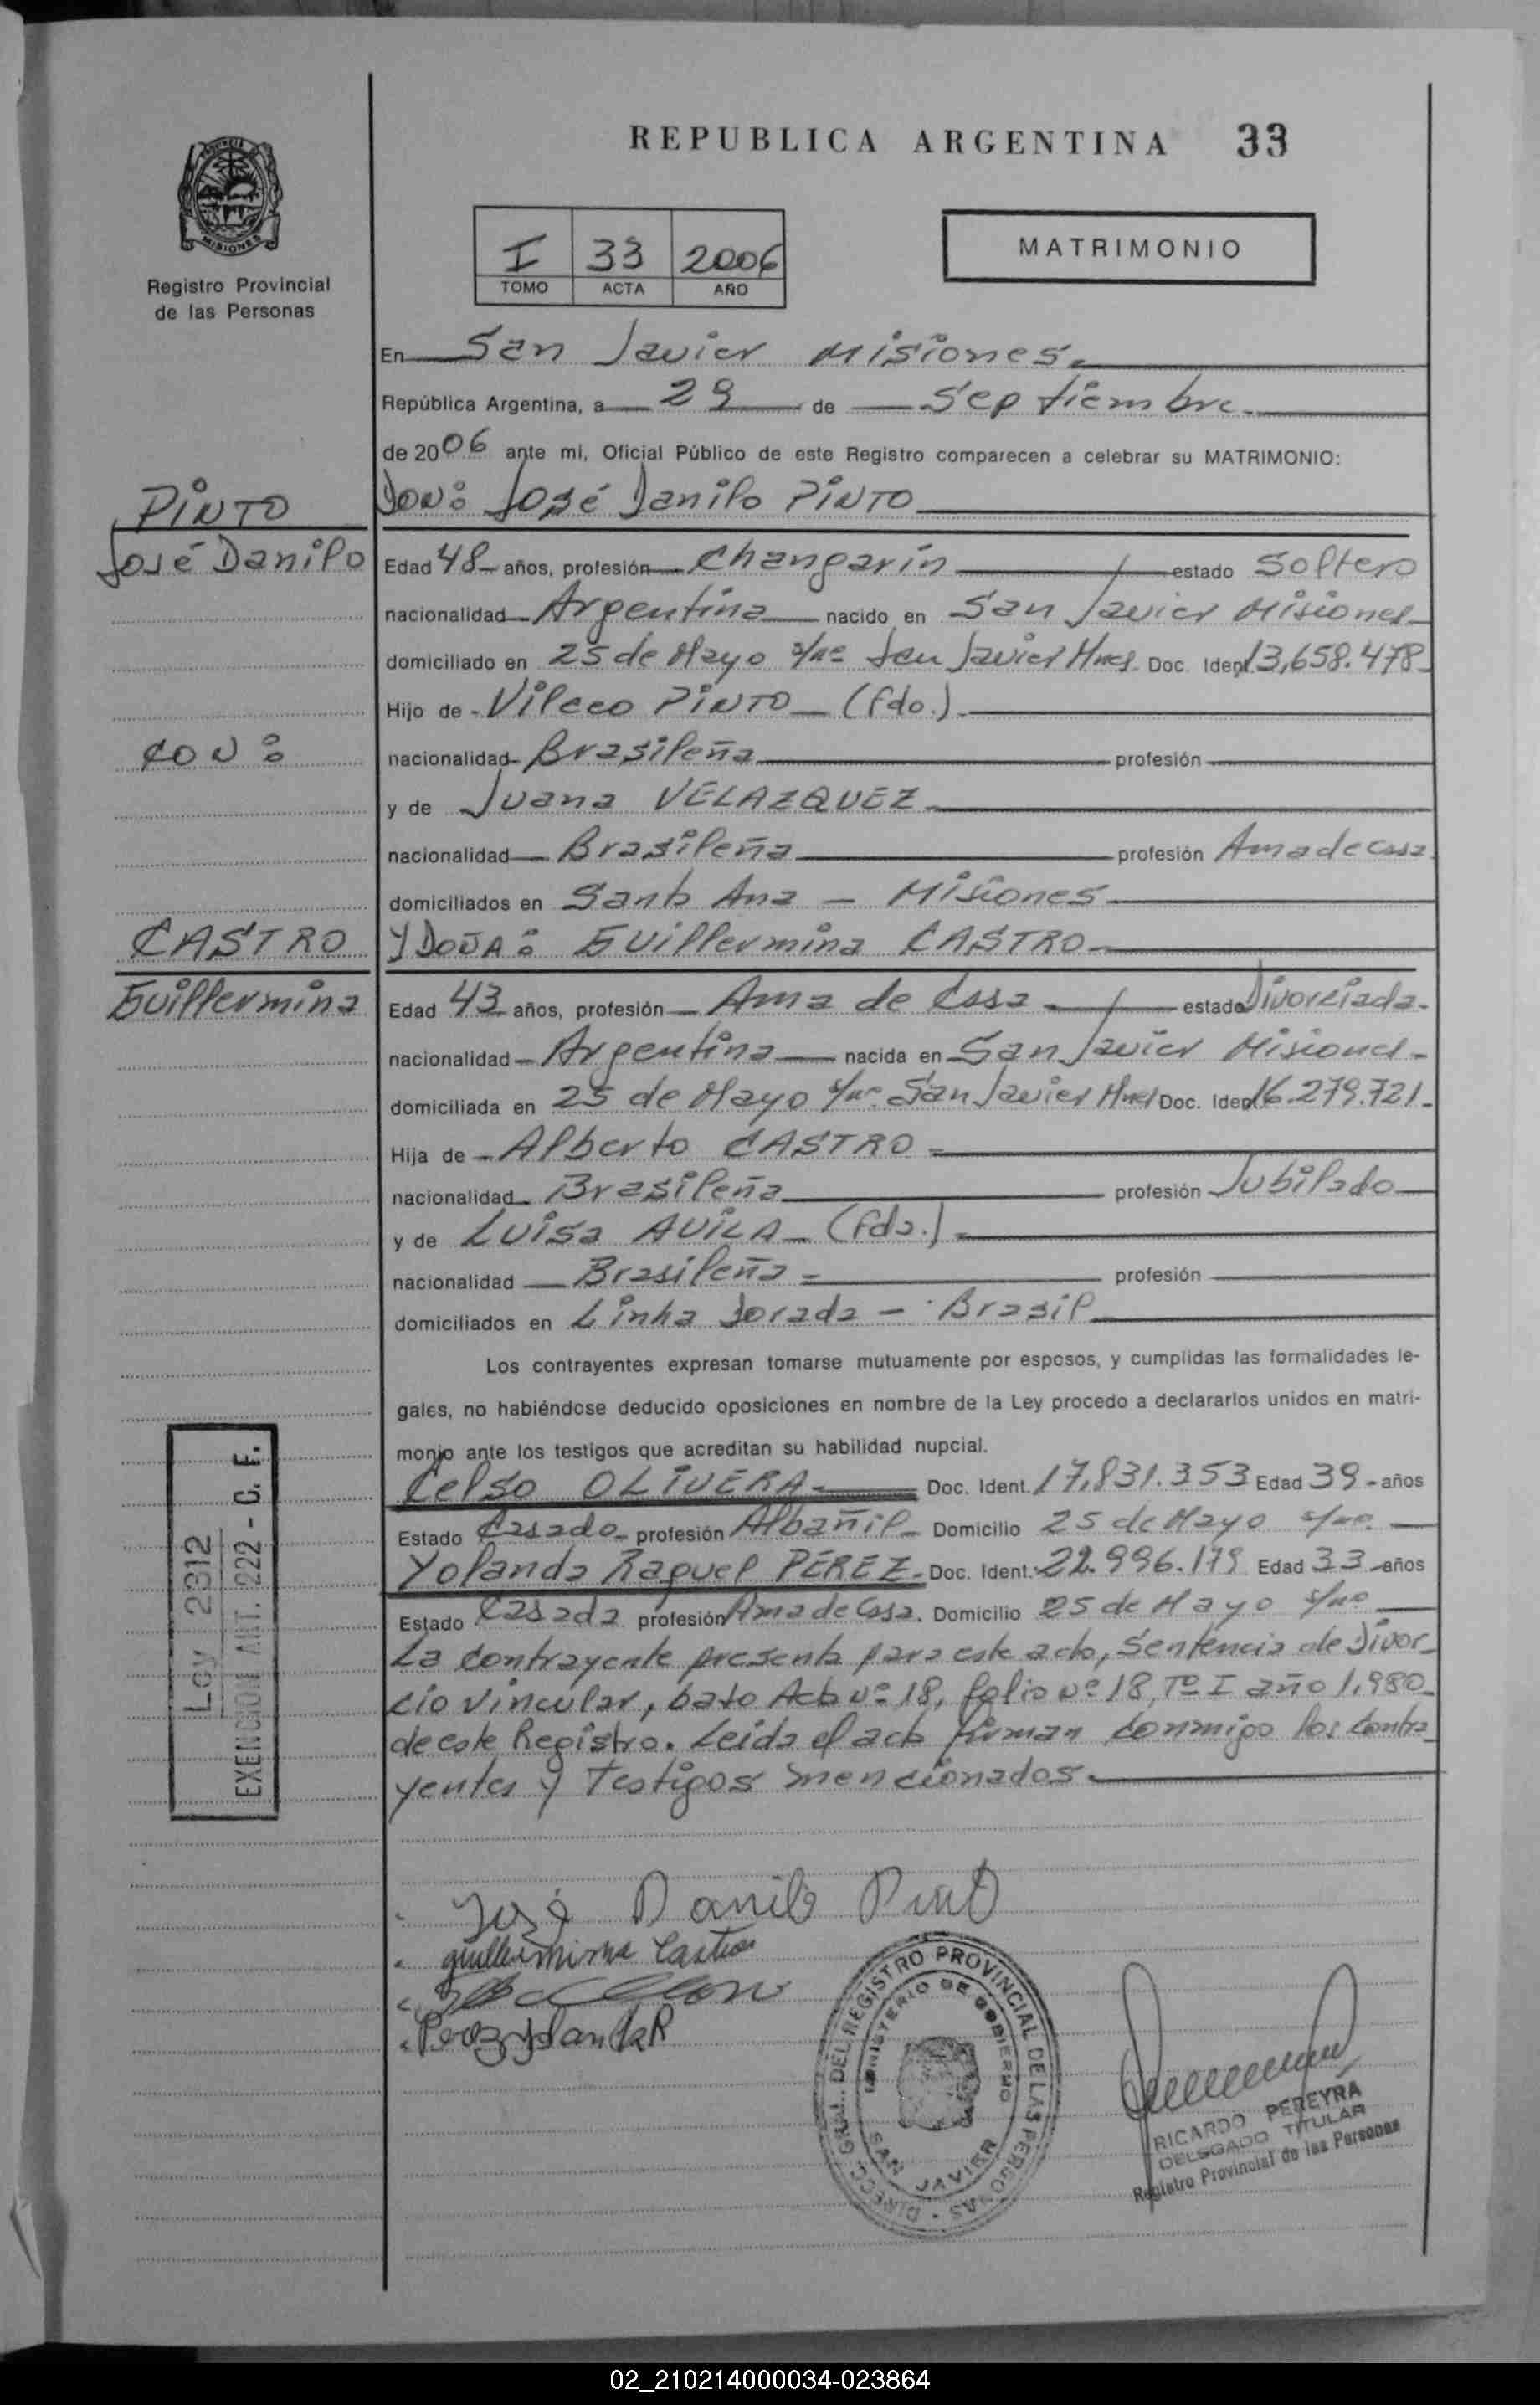 REPUBLICA ARGENTINA 33
MISIONES
Registro Provincial
de las Personas
I 33 2006
TOMO ACTA AÑO
MATRIMONIO
En San Javier Misiones.
República Argentina, a 29 de Septiembre.
de 2006 ante mi, Oficial Público de este Registro comparecen a celebrar su MATRIMONIO:
PINTO
DON: José Danilo PINTO
José Danilo
Edad 48 años, profesión Changarín estado Soltero
nacionalidad Argentina nacido en San Javier Misiones
domiciliado en 25 de Mayo s/nº San Javier Mnes Doc. Ident 13,658.478
Hijo de Vilceo PINTO (fdo.).
CON:
nacionalidad Brasileña profesión
y de Juana VELAZQUEZ
nacionalidad Brasileña profesión Ama de casa
domiciliados en Santa Ana - Misiones
CASTRO
Y DOÑA: Guillermina CASTRO
Guillermina
Edad 43 años, profesión Ama de Casa estado Divorciada.
nacionalidad Argentina nacida en San Javier Misiones
domiciliada en 25 de Mayo s/nº San Javier Mnes Doc. Ident 16.279.721.
Hija de Alberto CASTRO
nacionalidad Brasileña profesión Jubilado
y de Luisa AVILA (fda.)
nacionalidad Brasileña profesión
domiciliados en Linha Dorada - Brasil
Los contrayentes expresan tomarse mutuamente por esposos, y cumplidas las formalidades le-
gales, no habiéndose deducido oposiciones en nombre de la Ley procedo a declararlos unidos en matri-
monio ante los testigos que acreditan su habilidad nupcial.
Celso OLIVERA Doc. Ident. 17,831.353 Edad 39 años
Estado Casado profesión Albañil Domicilio 25 de Mayo s/nº
Yolanda Raquel PÉREZ Doc. Ident. 22.996.179 Edad 33 años
Estado Casada profesión Ama de Casa. Domicilio 25 de Mayo s/nº
La contrayente presenta para este acto, Sentencia de Divor-
cio vincular, bajo Acta Nº 18, folio Nº 18, Tº I año 1.980
de este Registro. Leída el acta firman conmigo los contra
yentes y Testigos mencionados.
Ley 2312
EXENCION ART. 222 - C. F.
José Danilo Pinto
guillermina Castro
Perez yolanda R
DIRECC. GRAL. DEL REGISTRO PROVINCIAL DE LAS PERSONAS
MINISTERIO DE GOBIERNO
SAN JAVIER
RICARDO PEREYRA
DELEGADO TITULAR
Registro Provincial de las Personas
02_210214000034-023864